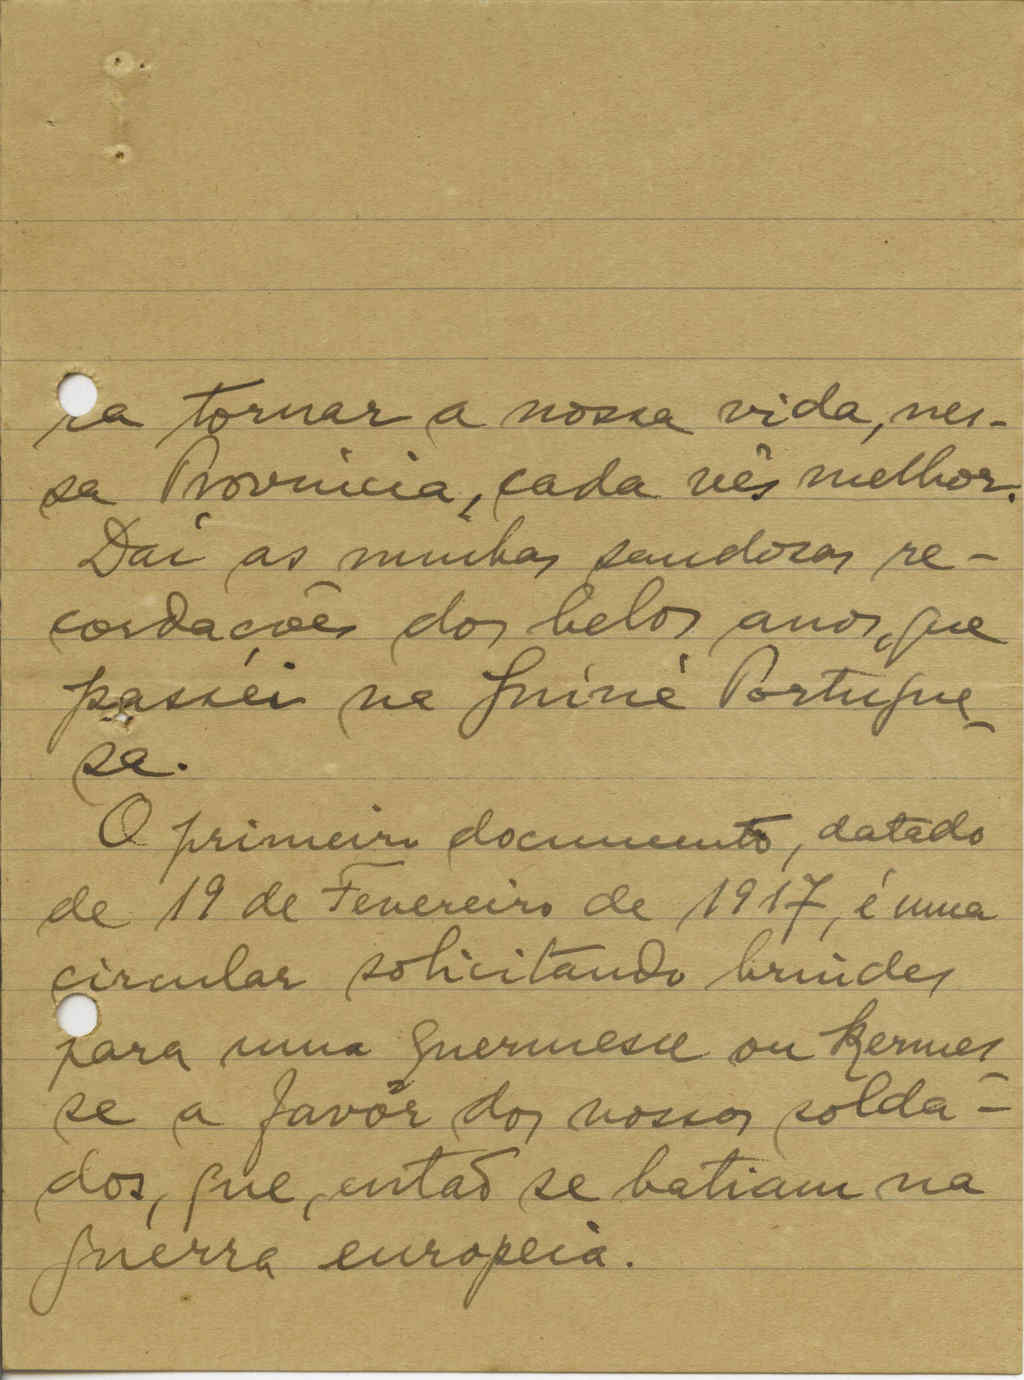 ra tornar a nossa vida, nes-
sa Provincia, cada vês melhor.
Daí as minhas saudosas re-
cordações dos belos anos, que
passei na Guiné Portugue-
sa.
O primeiro documento, datado
de 19 de Fevereiro de 1917, é uma
circular solicitando brindes
para uma guermesse ou kermes-
se a favôr dos nossos solda-
dos, que, então se batiam na
guerra europeia.